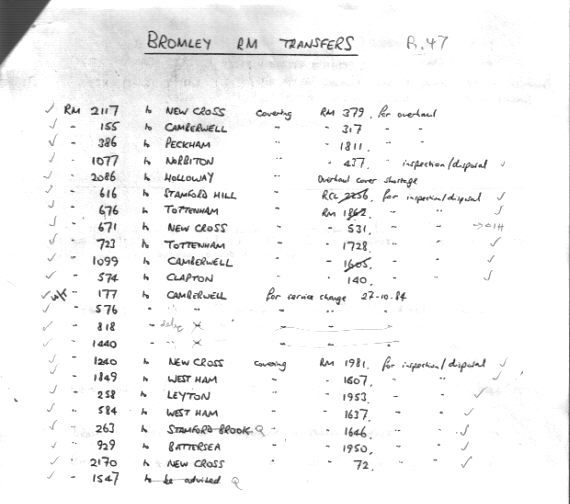 BROMLEY RM TRANSFERS R.47
✓ RM 2117 to NEW CROSS covering RM 379. for overhaul
✓ " 155 to CAMBERWELL " " 317 " "
✓ " 386 to PECKHAM " " 1811. " "
✓ " 1077 to NORBITON " " 437. " inspection/disposal ✓
✓ " 2086 to HOLLOWAY Overhaul cover shortage
✓ " 616 to STAMFORD HILL " RCL 2256. for inspection/disposal ✓
✓ " 676 to TOTTENHAM " RM 1862. " " ✓
✓ " 671 to NEW CROSS " " 531. " " → O/H
✓ " 723 to TOTTENHAM " " 1728. " " ✓
✓ " 1099 to CAMBERWELL " " 1605. " " ✓
✓ " 574 to CLAPTON " " 140. " " ✓
✓ " 177 to CAMBERWELL for service change 27-10-84
✓ " 576 " " " " "
✓ " 818 " delic X " " "
✓ " 1440 " " X " " "
✓ " 1240 to NEW CROSS covering RM 1981. for inspection/disposal ✓
✓ " 1849 to WEST HAM " " 1607. " " ✓
✓ " 258 to LEYTON " " 1953. " " ✓
✓ " 584 to WEST HAM " " 1637. " " ✓
✓ " 263 to STAMFORD BROOK Q " " 1646. " " ✓
✓ " 929 to BATTERSEA " " 1950. " " ✓
✓ " 2170 to NEW CROSS " " 72. " " ✓
✓ " 1547 to be advised Q